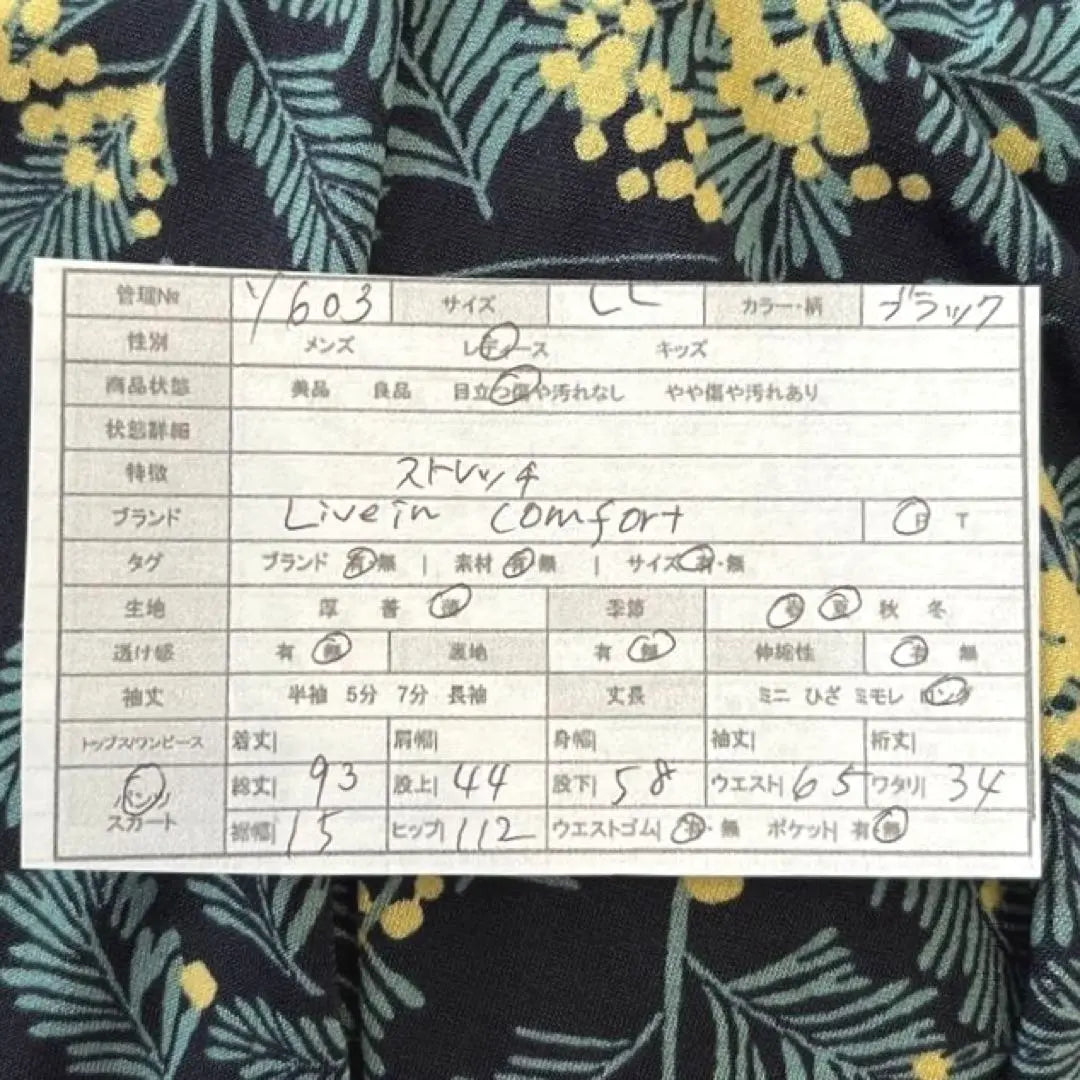 管理№ Y603 サイズ LL カラー・柄 ブラック
性別 メンズ レディース キッズ
商品状態 美品 良品 目立つ傷や汚れなし やや傷や汚れあり
状態詳細
特徴 ストレッチ
ブランド Livein comfort F T
タグ ブランド 有・無 | 素材 有・無 | サイズ 有・無
生地 厚 普 薄 季節 春 夏 秋 冬
透け感 有 無 裏地 有 無 伸縮性 有 無
袖丈 半袖 5分 7分 長袖 丈長 ミニ ひざ ミモレ ロング
トップス/ワンピース 着丈| 肩幅| 身幅| 袖丈| 裄丈|
パンツ 総丈| 93 股上| 44 股下| 58 ウエスト| 65 ワタリ| 34
スカート 裾幅| 15 ヒップ| 112 ウエストゴム| 有・無 ポケット| 有・無